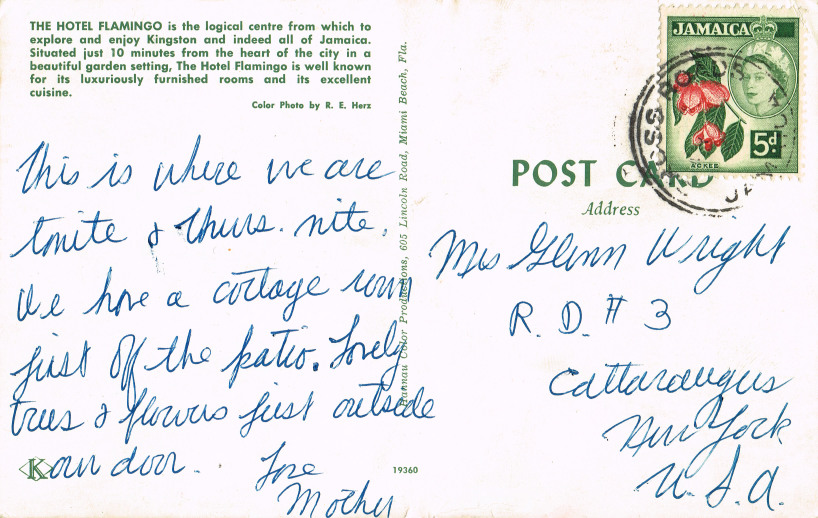 THE HOTEL FLAMINGO is the logical centre from which to
explore and enjoy Kingston and indeed all of Jamaica.
Situated just 10 minutes from the heart of the city in a
beautiful garden setting, The Hotel Flamingo is well known
for its luxuriously furnished rooms and its excellent
cuisine.
Color Photo by R. E. Herz
This is where we are
tonite & Thurs. nite.
We have a cottage room
just off the patio. Lovely
trees & flowers just outside
our door. Love
Mother
K
19360
Hannau Color Productions, 605 Lincoln Road, Miami Beach, Fla.
JAMAICA
5d
ACKEE
CROSS ROADS
JAMAICA
POST CARD
Address
Mrs Glenn Wright
R. D. # 3
Cattaraugus
New York
U. S. A.